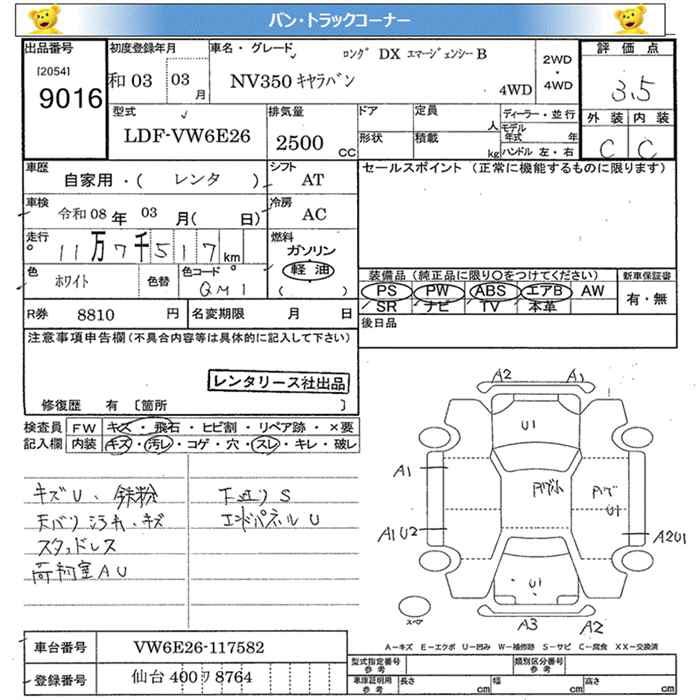 バン・トラックコーナー
出品番号 [2054] 9016
初度登録年月 和03 03月
車名・グレード ロング DX エマージェンシーB
NV350キャラバン 4WD
2WD・4WD
評価点 3.5
外装 内装
C C
型式 LDF-VW6E26
排気量 2500 CC
ドア 定員 人
形状 積載 kg
ディーラー・並行
モデル年式 年
ハンドル 左・右
車歴 自家用・( レンタ )
シフト AT
セールスポイント (正常に機能するものに限ります)
車検 令和08年 03月( 日)
冷房 AC
走行 11万7千517km
燃料 ガソリン 軽油 ( )
色 ホワイト 色替 色コード QM1
装備品(純正品に限り○をつけてください) 新車保証書
PS PW ABS エアB AW 有・無
SR ナビ TV 本革
R券 8810円 名変期限 月 日
後日品
注意事項申告欄(不具合内容等は具体的に記入して下さい)
レンタリース社出品
修復歴 有 [箇所 ]
検査員記入欄 FW キズ・飛石・ヒビ割・リペア跡・×要
内装 キズ・汚レ・コゲ・穴・スレ・キレ・破レ
キズU、鉄粉
天バリ汚れ、キズ
スタッドレス
荷物室AU
下廻りS
エンドパネルU
A2 A1
U1
A1
A1U2
U1
A2U1
U1
スペア
A3 A2
A－キズ E－エクボ U－凹み W－補修跡 S－サビ C－腐食 XX－交換済
車台番号 VW6E26-117582
登録番号 仙台 400 ワ 8764
型式指定番号 参考 類別区分番号 参考
車庫証明用 参考 長さ cm 幅 cm 高さ cm